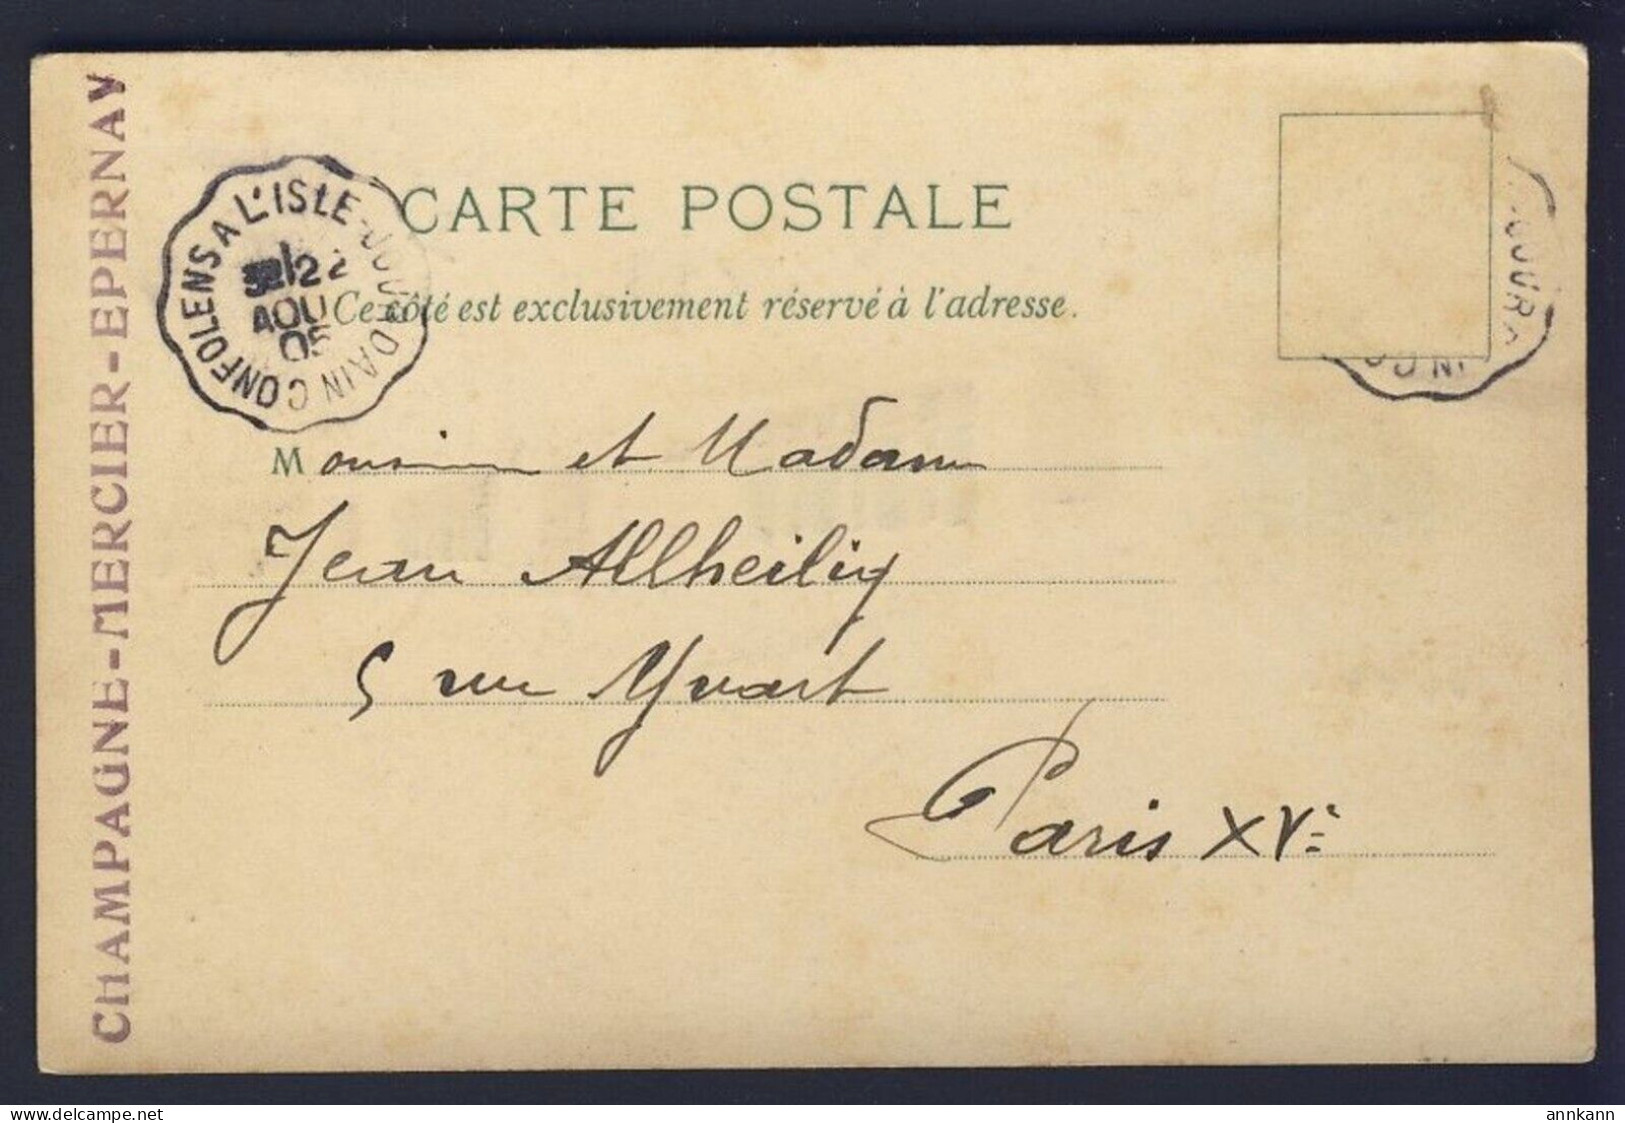 CHAMPAGNE-MERCIER-EPERNAY
CONFOLENS A L'ISLE-JOURDAIN
22
AOU
05
CARTE POSTALE
Ce côté est exclusivement réservé à l'adresse.
Monsieur et Madame
Jean Allheilig
5 rue Yvart
Paris XVe
delcampe.net
annkann